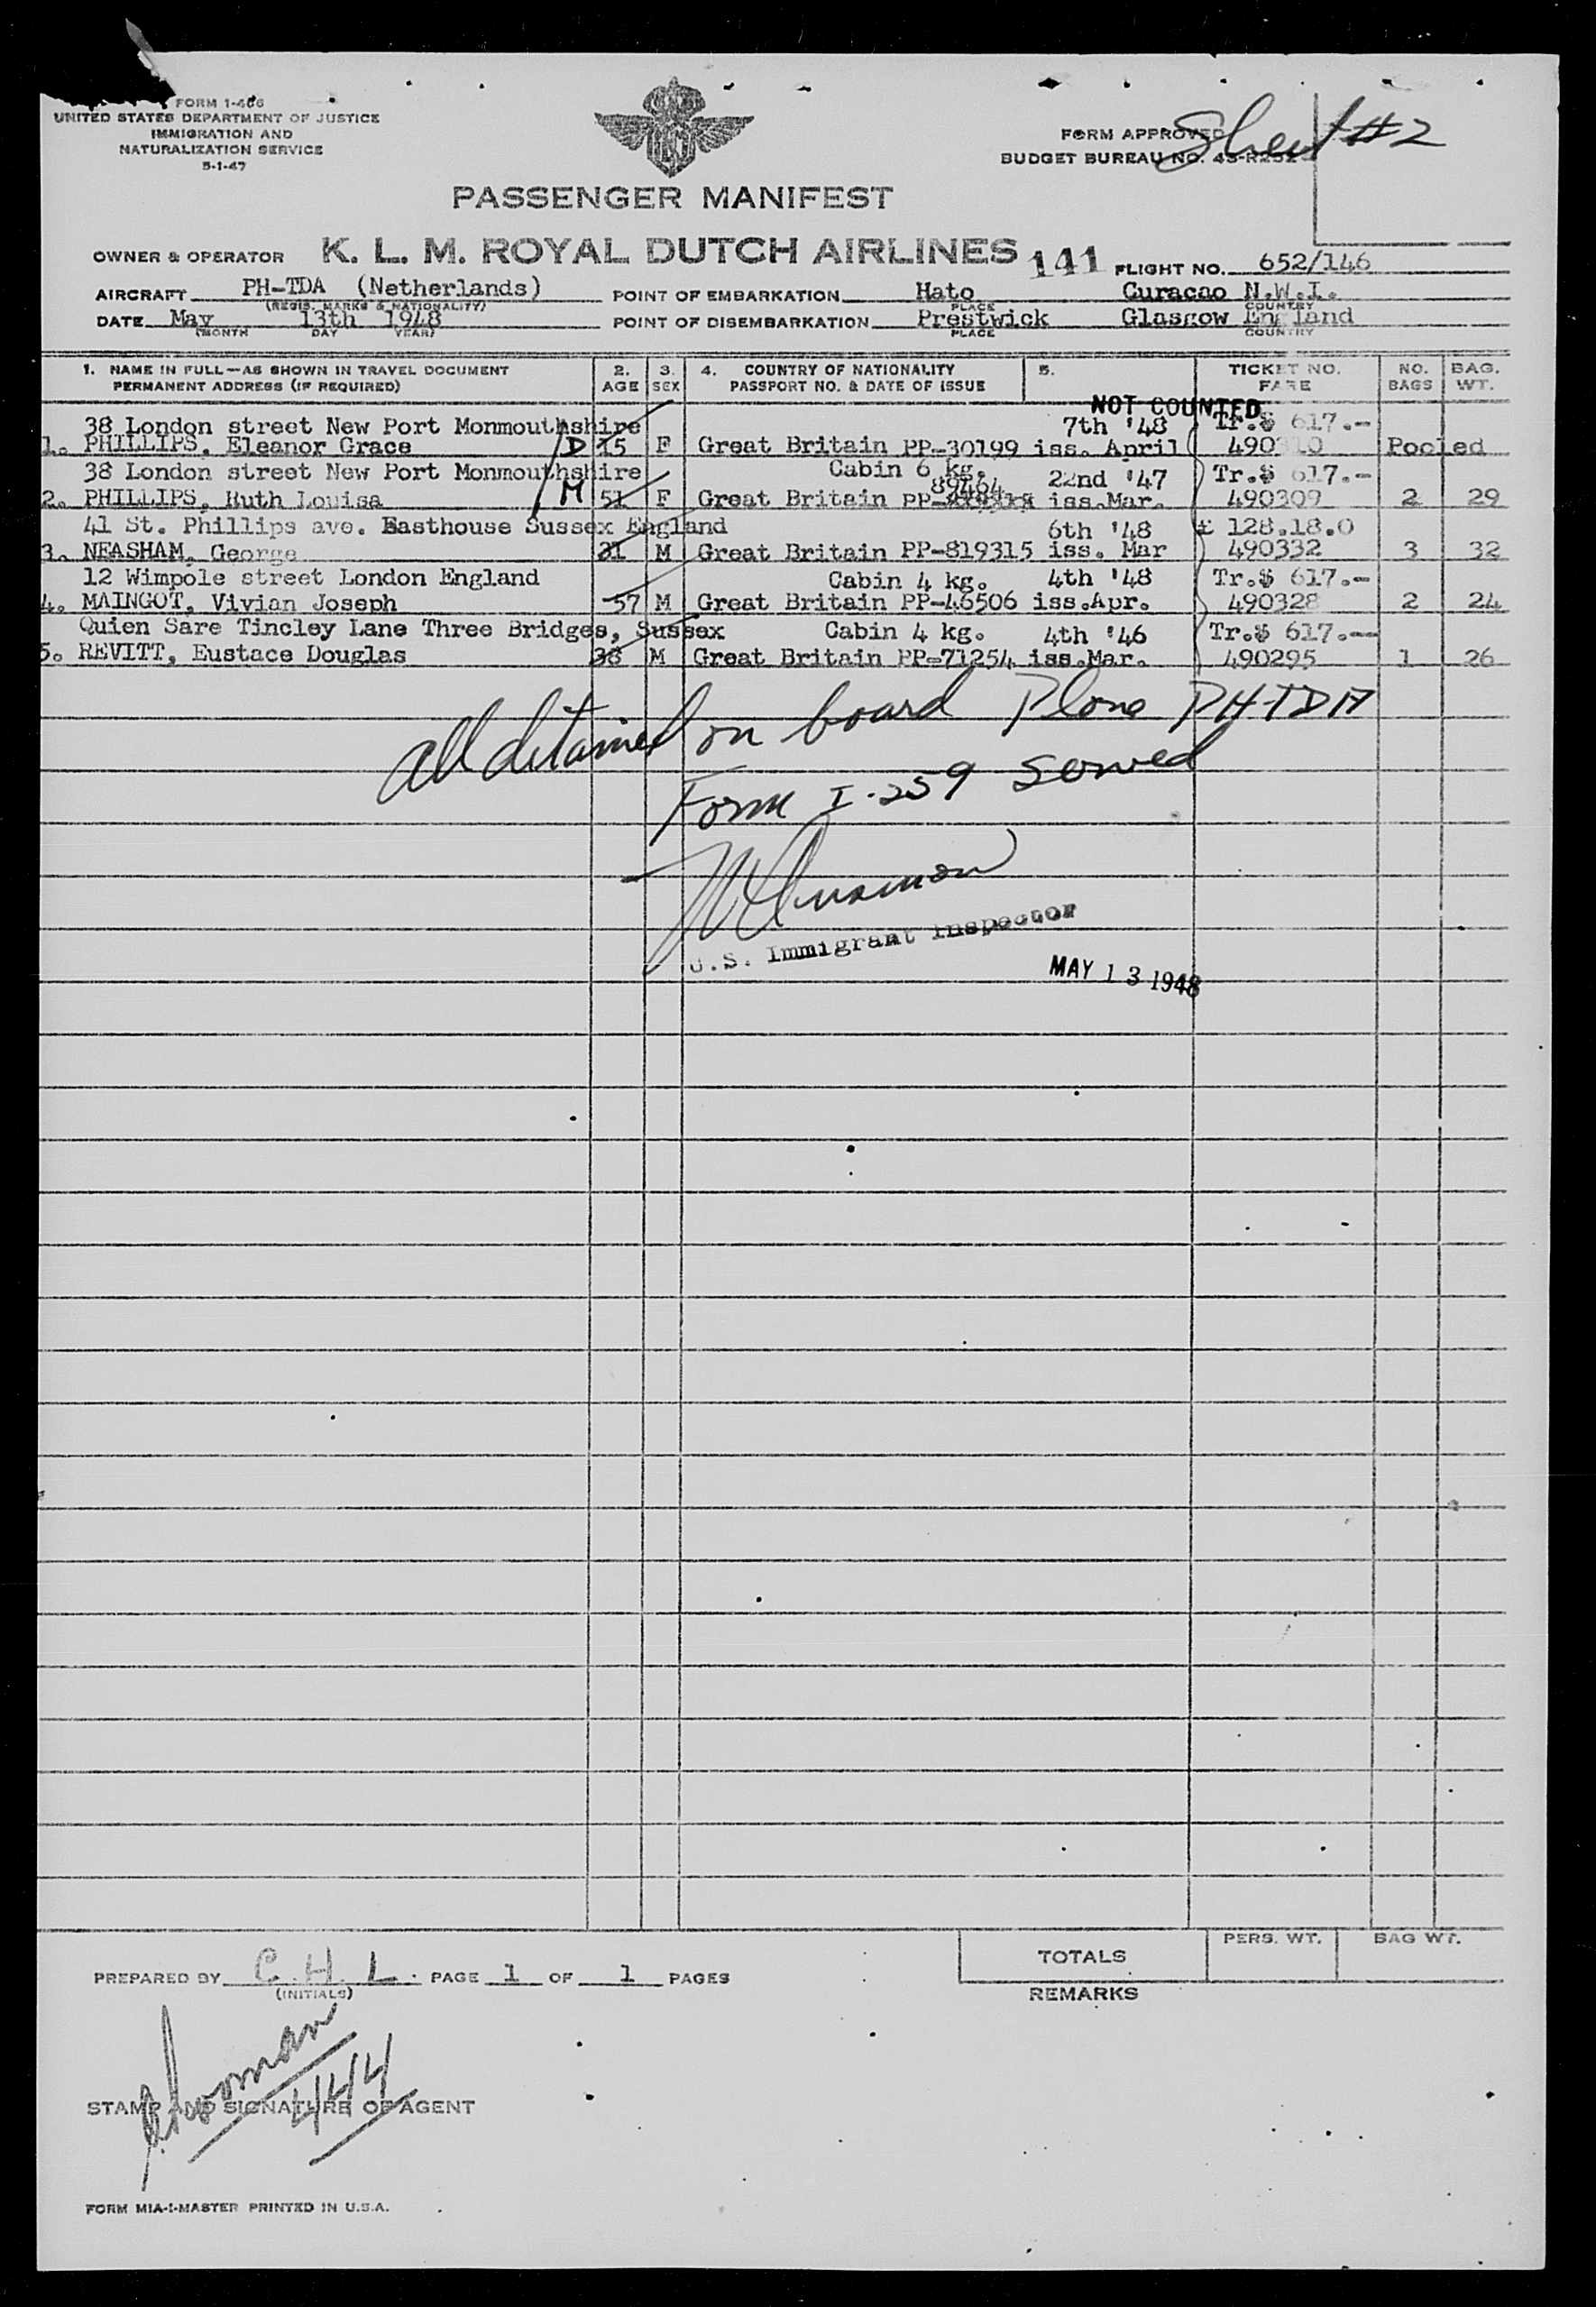 FORM 1-466
UNITED STATES DEPARTMENT OF JUSTICE
IMMIGRATION AND
NATURALIZATION SERVICE
5-1-47
FORM APPROVED
BUDGET BUREAU NO. 43-R232
Sheet #2
PASSENGER MANIFEST
OWNER & OPERATOR K. L. M. ROYAL DUTCH AIRLINES 141 FLIGHT NO. 652/146
AIRCRAFT PH-TDA (Netherlands) POINT OF EMBARKATION Hato Curacao N.W.I.
(REGIS. MARKS & NATIONALITY) PLACE COUNTRY
DATE May 13th 1948 POINT OF DISEMBARKATION Prestwick Glasgow England
(MONTH DAY YEAR) PLACE COUNTRY
1. NAME IN FULL—AS SHOWN IN TRAVEL DOCUMENT 2. 3. 4. COUNTRY OF NATIONALITY 5. TICKET NO. NO. BAG.
PERMANENT ADDRESS (IF REQUIRED) AGE SEX PASSPORT NO. & DATE OF ISSUE FARE BAGS WT.
NOT COUNTED
38 London street New Port Monmouthshire 7th '48 Tr.$ 617.-
1. PHILLIPS, Eleanor Grace D 15 F Great Britain PP-30199 iss. April 490310 Pooled
38 London street New Port Monmouthshire Cabin 6 kg. 22nd '47 Tr.$ 617.-
89464
2. PHILLIPS, Ruth Louisa M 51 F Great Britain PP- iss.Mar. 490309 2 29
41 St. Phillips ave. Easthouse Sussex England 6th '48 £ 128.18.0
3. NEASHAM, George 21 M Great Britain PP-819315 iss. Mar 490332 3 32
12 Wimpole street London England Cabin 4 kg. 4th '48 Tr.$ 617.-
4. MAINGOT, Vivian Joseph 57 M Great Britain PP-46506 iss.Apr. 490328 2 24
Quien Sare Tincley Lane Three Bridges, Sussex Cabin 4 kg. 4th '46 Tr.$ 617.--
5. REVITT, Eustace Douglas 38 M Great Britain PP-71254 iss.Mar. 490295 1 26
all detained on board Plane PH-TDA
Form I-259 Served
U.S. Immigrant Inspector
MAY 13 1948
PREPARED BY C. H. L. PAGE 1 OF 1 PAGES
(INITIALS)
TOTALS PERS. WT. BAG WT.
REMARKS
444
STAMP AND SIGNATURE OF AGENT
FORM MIA-1-MASTER PRINTED IN U.S.A.